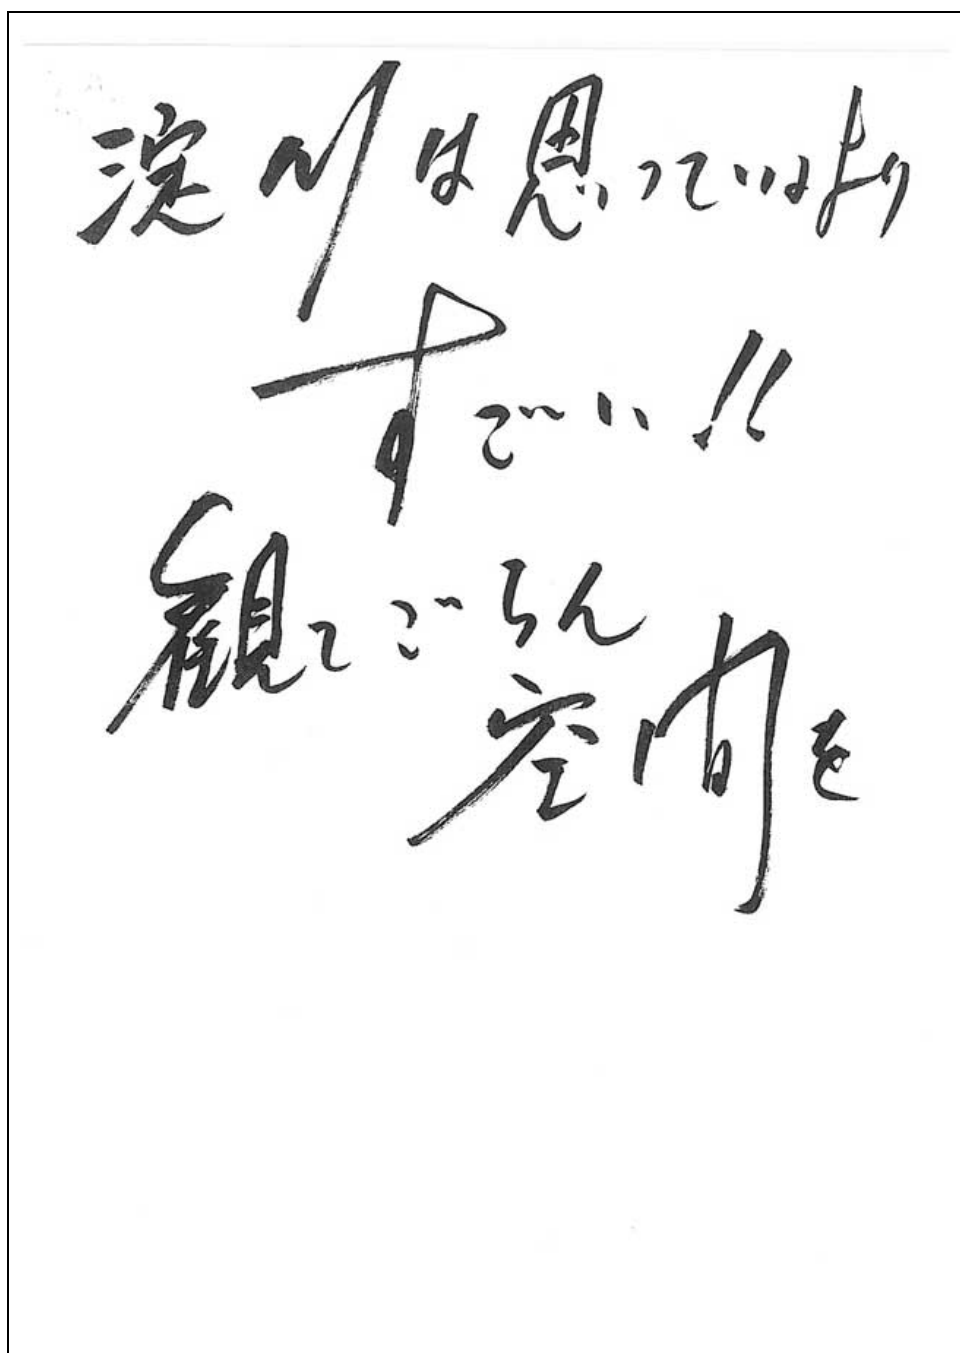 淀川は思っているより
すごい!!
観てごらん
空間を